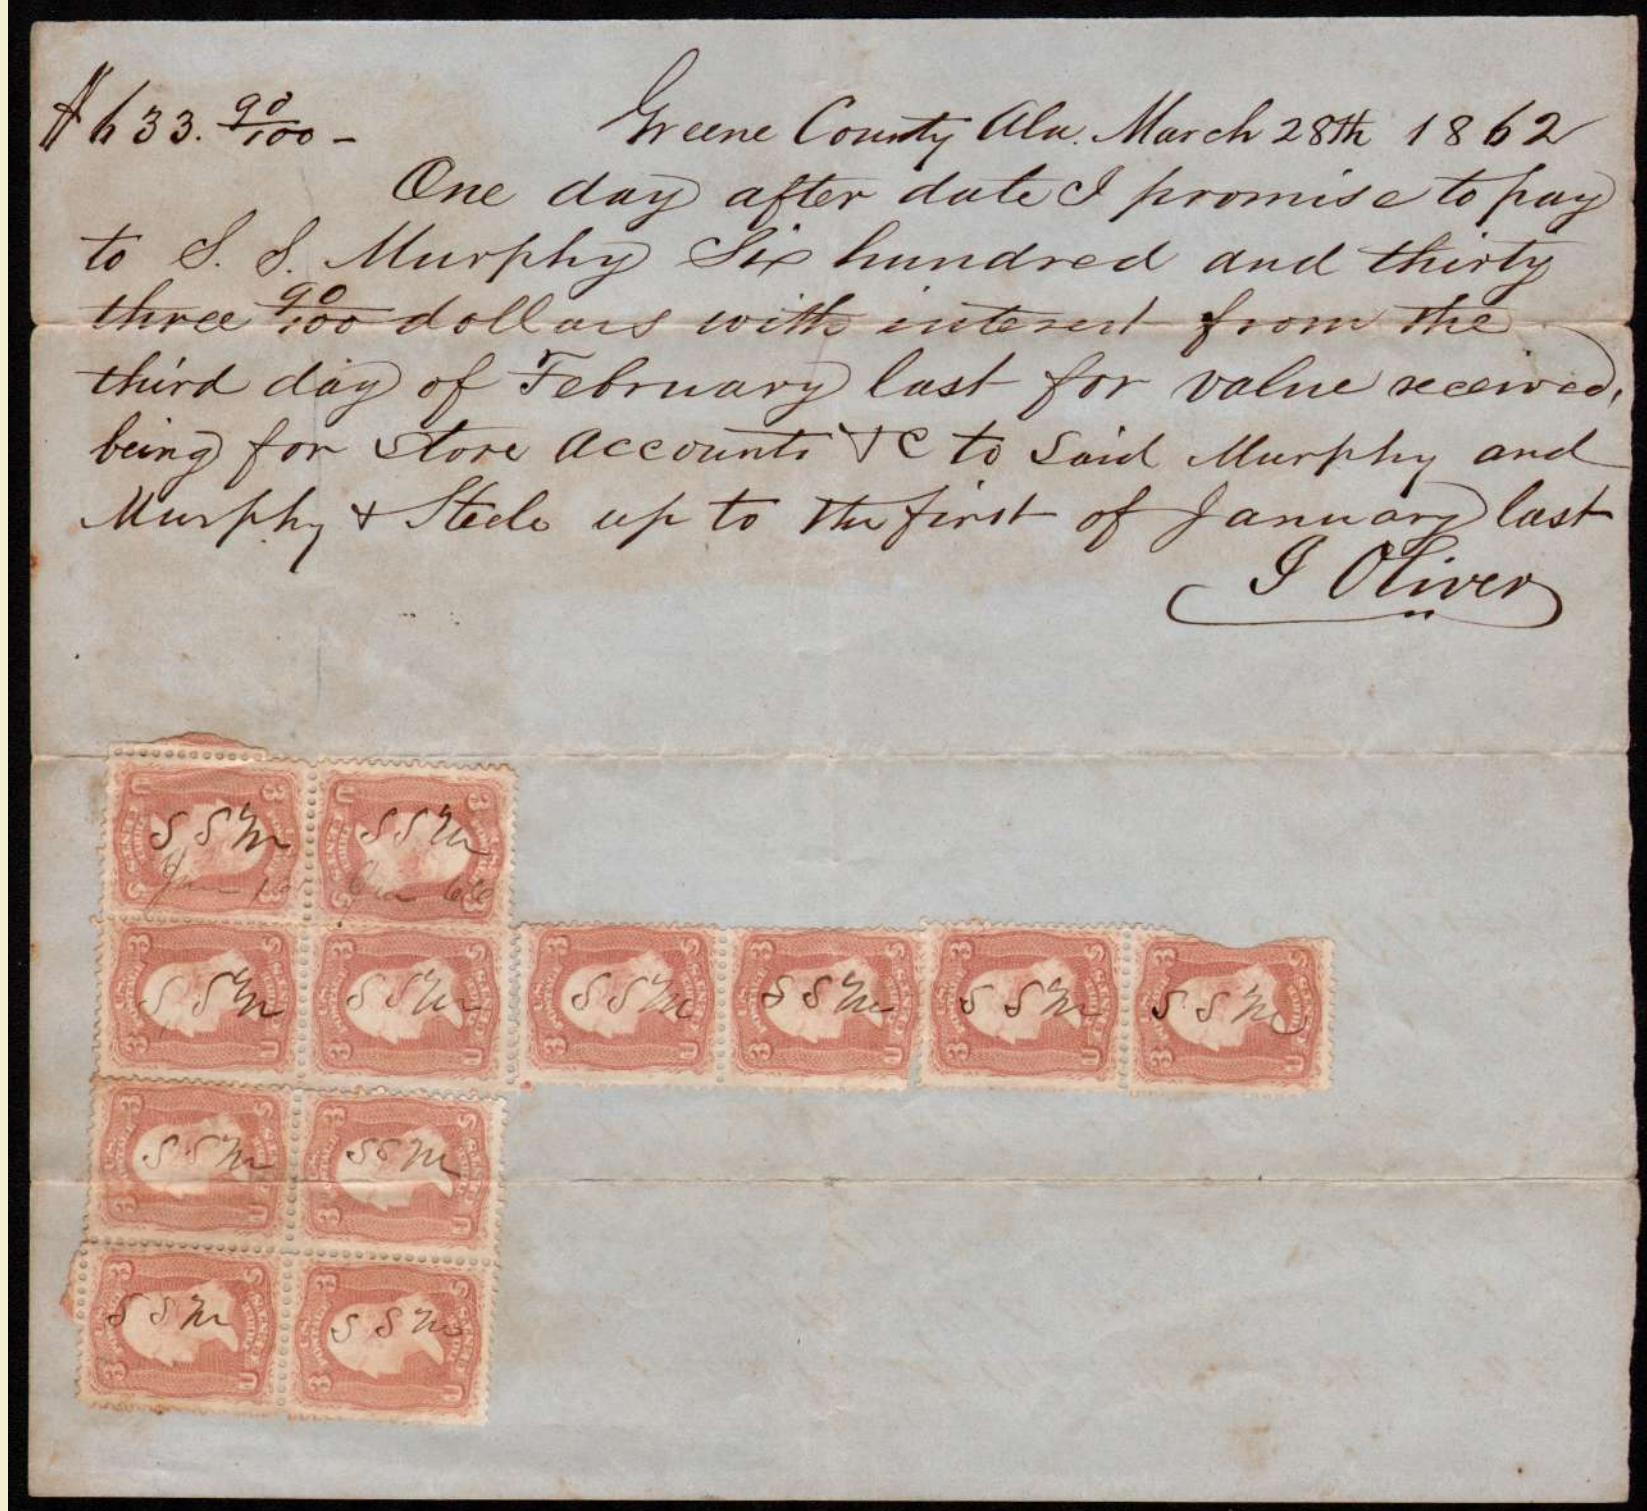 $633. 90/100 -
Greene County Ala. March 28th 1862
One day after date I promise to pay
to S. S. Murphy Six hundred and thirty
three 90/100 dollars with interest from the
third day of February last for value received,
being for store accounts &C to said Murphy and
Murphy & Steele up to the first of January last
J Oliver
S S M S S M
Jan
S S M S S M S S M S S M S S M S S M
S S M S S M
S S M S S M